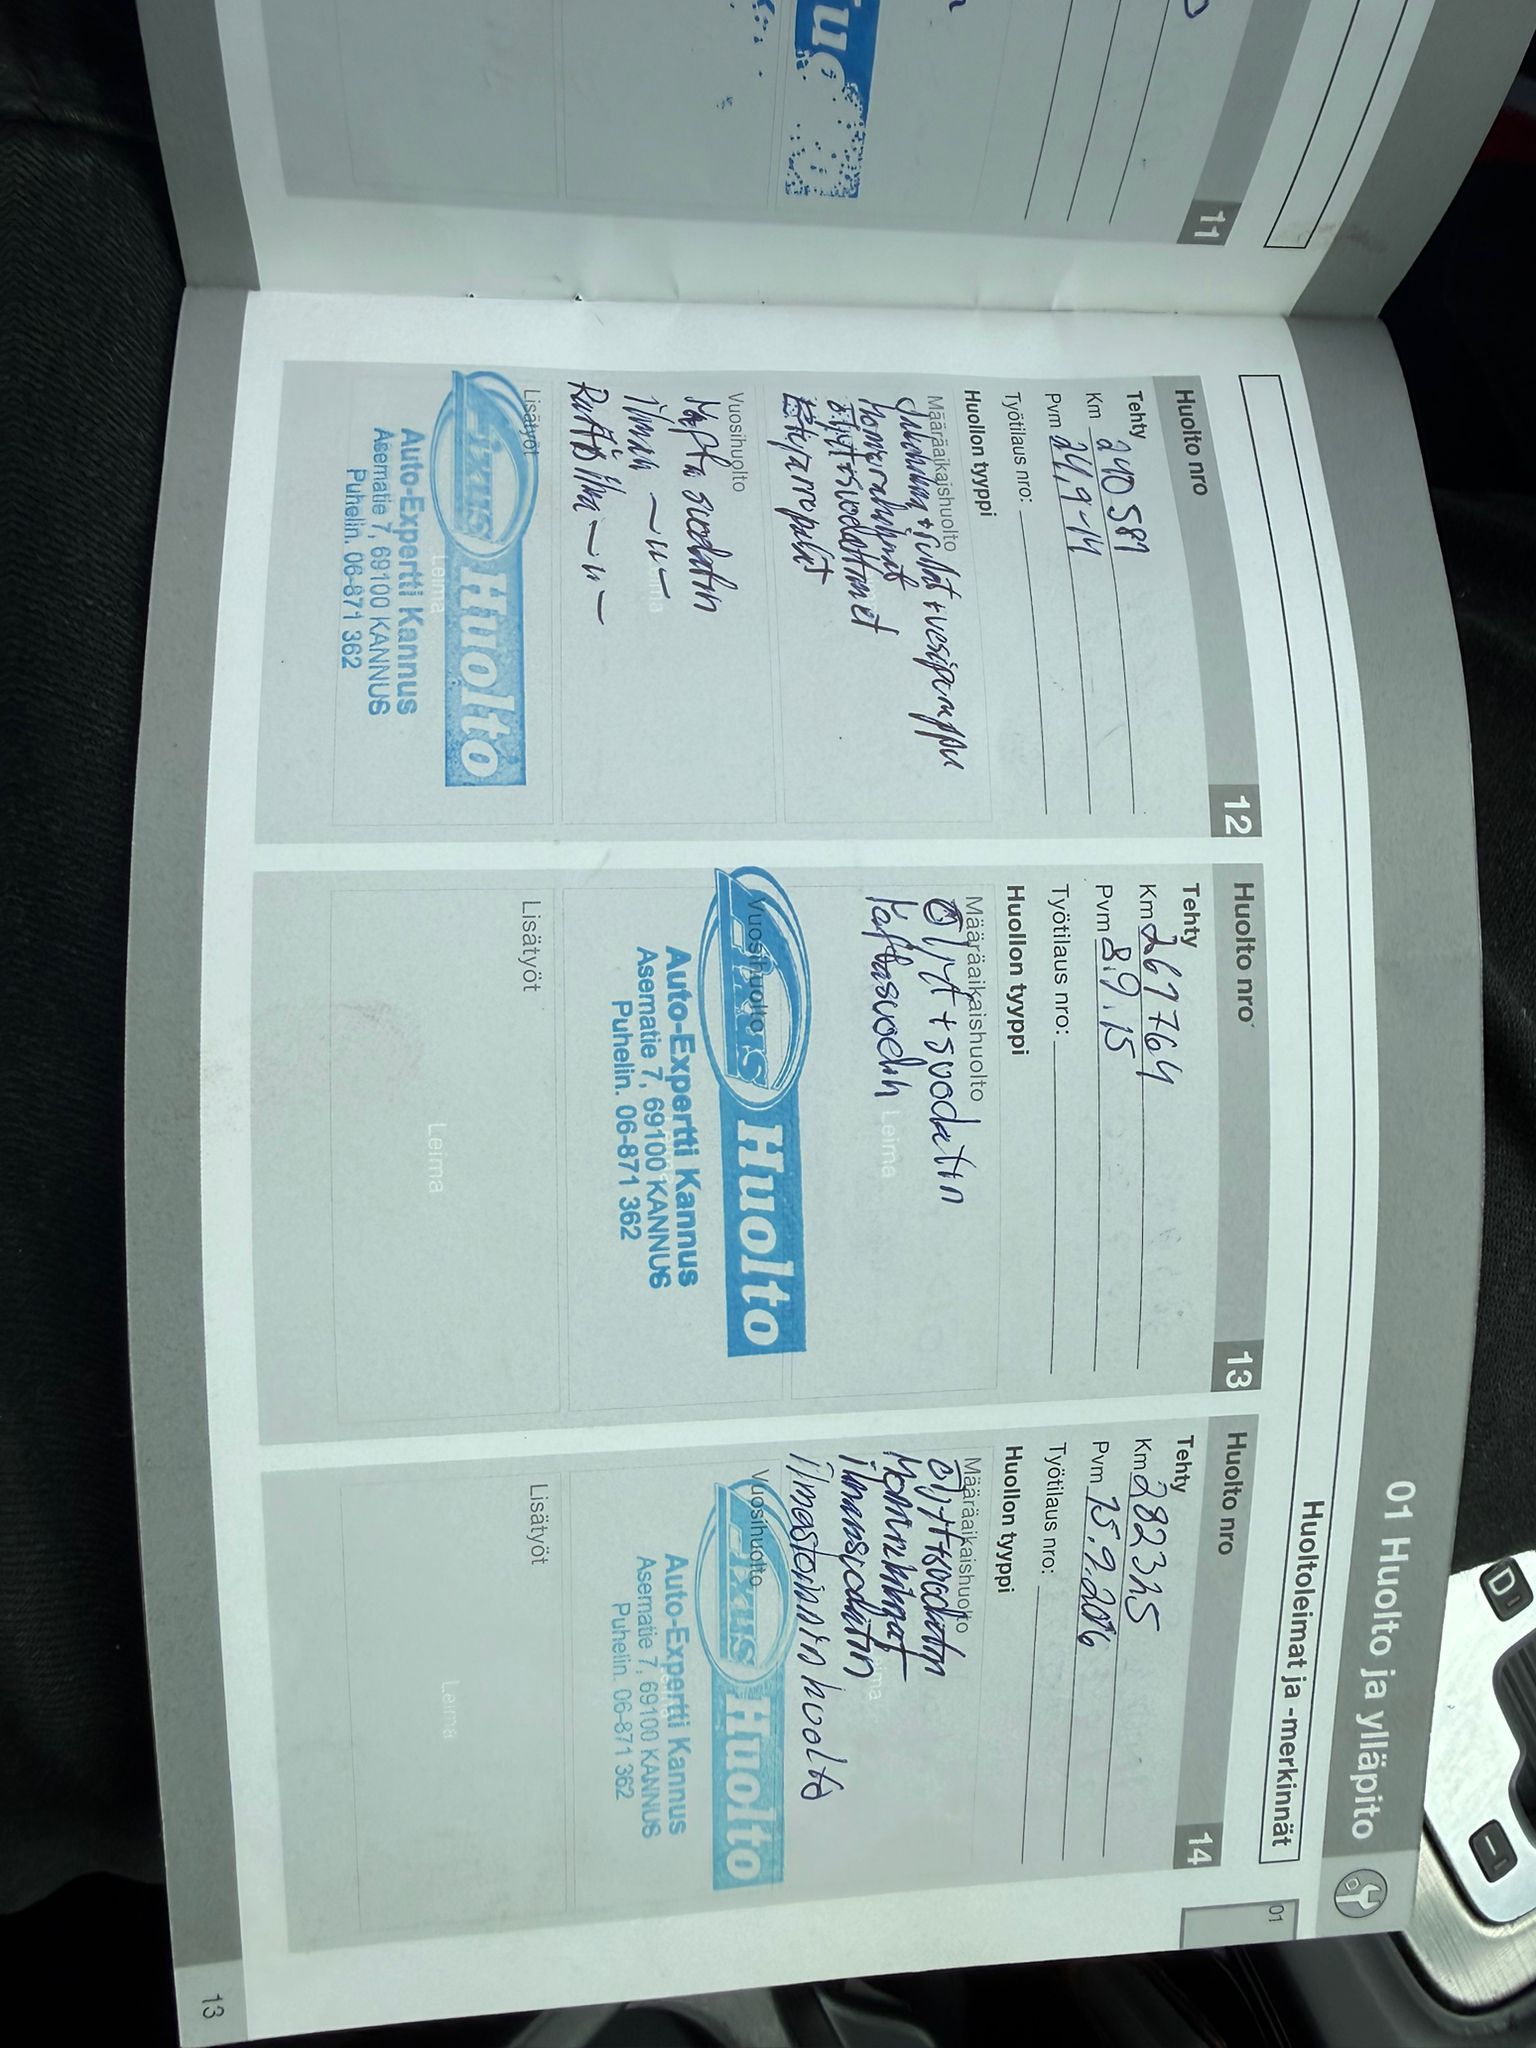 11
01 Huolto ja ylläpito
Huoltoleimat ja -merkinnät
01
Huolto nro 12
Tehty
Km 240581
Pvm 24.9-14
Työtilaus nro:
Huollon tyyppi
Määräaikaishuolto
+ rullat + vesipumppu
öljyt+suodattimet
Leima
Vuosihuolto
Nafta suodatin
ilman –״–
Raitis ilma –״–
Leima
Lisätyöt
Fixus Huolto
Leima
Auto-Expertti Kannus
Asematie 7, 69100 KANNUS
Puhelin. 06-871 362
Huolto nro 13
Tehty
Km 267764
Pvm 8.9.15
Työtilaus nro:
Huollon tyyppi
Määräaikaishuolto
Öljyt + suodatin
Naftasuodin
Leima
Vuosihuolto
Fixus Huolto
Auto-Expertti Kannus
Asematie 7, 69100 KANNUS
Puhelin. 06-871 362
Lisätyöt
Leima
Huolto nro 14
Tehty
Km 282315
Pvm 15.9.2016
Työtilaus nro:
Huollon tyyppi
Määräaikaishuolto
öljyt+suodatin
Moniurahihnat
ilmansuodatin
ilmastoinnin huolto
Leima
Vuosihuolto
Fixus Huolto
Auto-Expertti Kannus
Asematie 7, 69100 KANNUS
Puhelin. 06-871 362
Lisätyöt
Leima
13